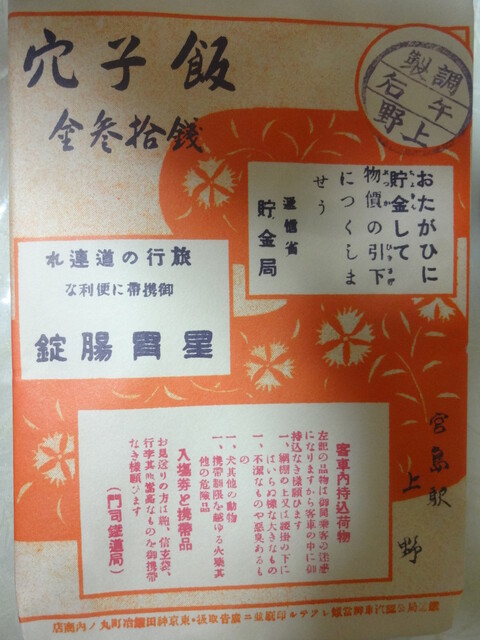 調製
上野
穴子飯
金參拾錢
おたがひに
貯金して
物價の引下
につくしま
せう
遞信省
貯金局
旅行の道連れ
御携帶に便利な
星胃腸錠
宮島駅
上野
客車內持込荷物
左記の品物は御同乘客の迷惑
になりますから客車の中に御
持込なき樣願ひます
一、網棚の上又は腰掛の下に
はいらぬ樣な大きなもの
一、不潔なものや惡臭あるも
の
一、犬其他の動物
一、携帶制限を越ゆる火藥其
他の危險品
入場券と携帶品
お見送りの方は鞄、信玄袋、
行李其他嵩高なものを御携帶
なき樣願ひます
(門司鐵道局)
印刷並ニ廣告取扱・東京神田鍛冶町丸ノ內商店